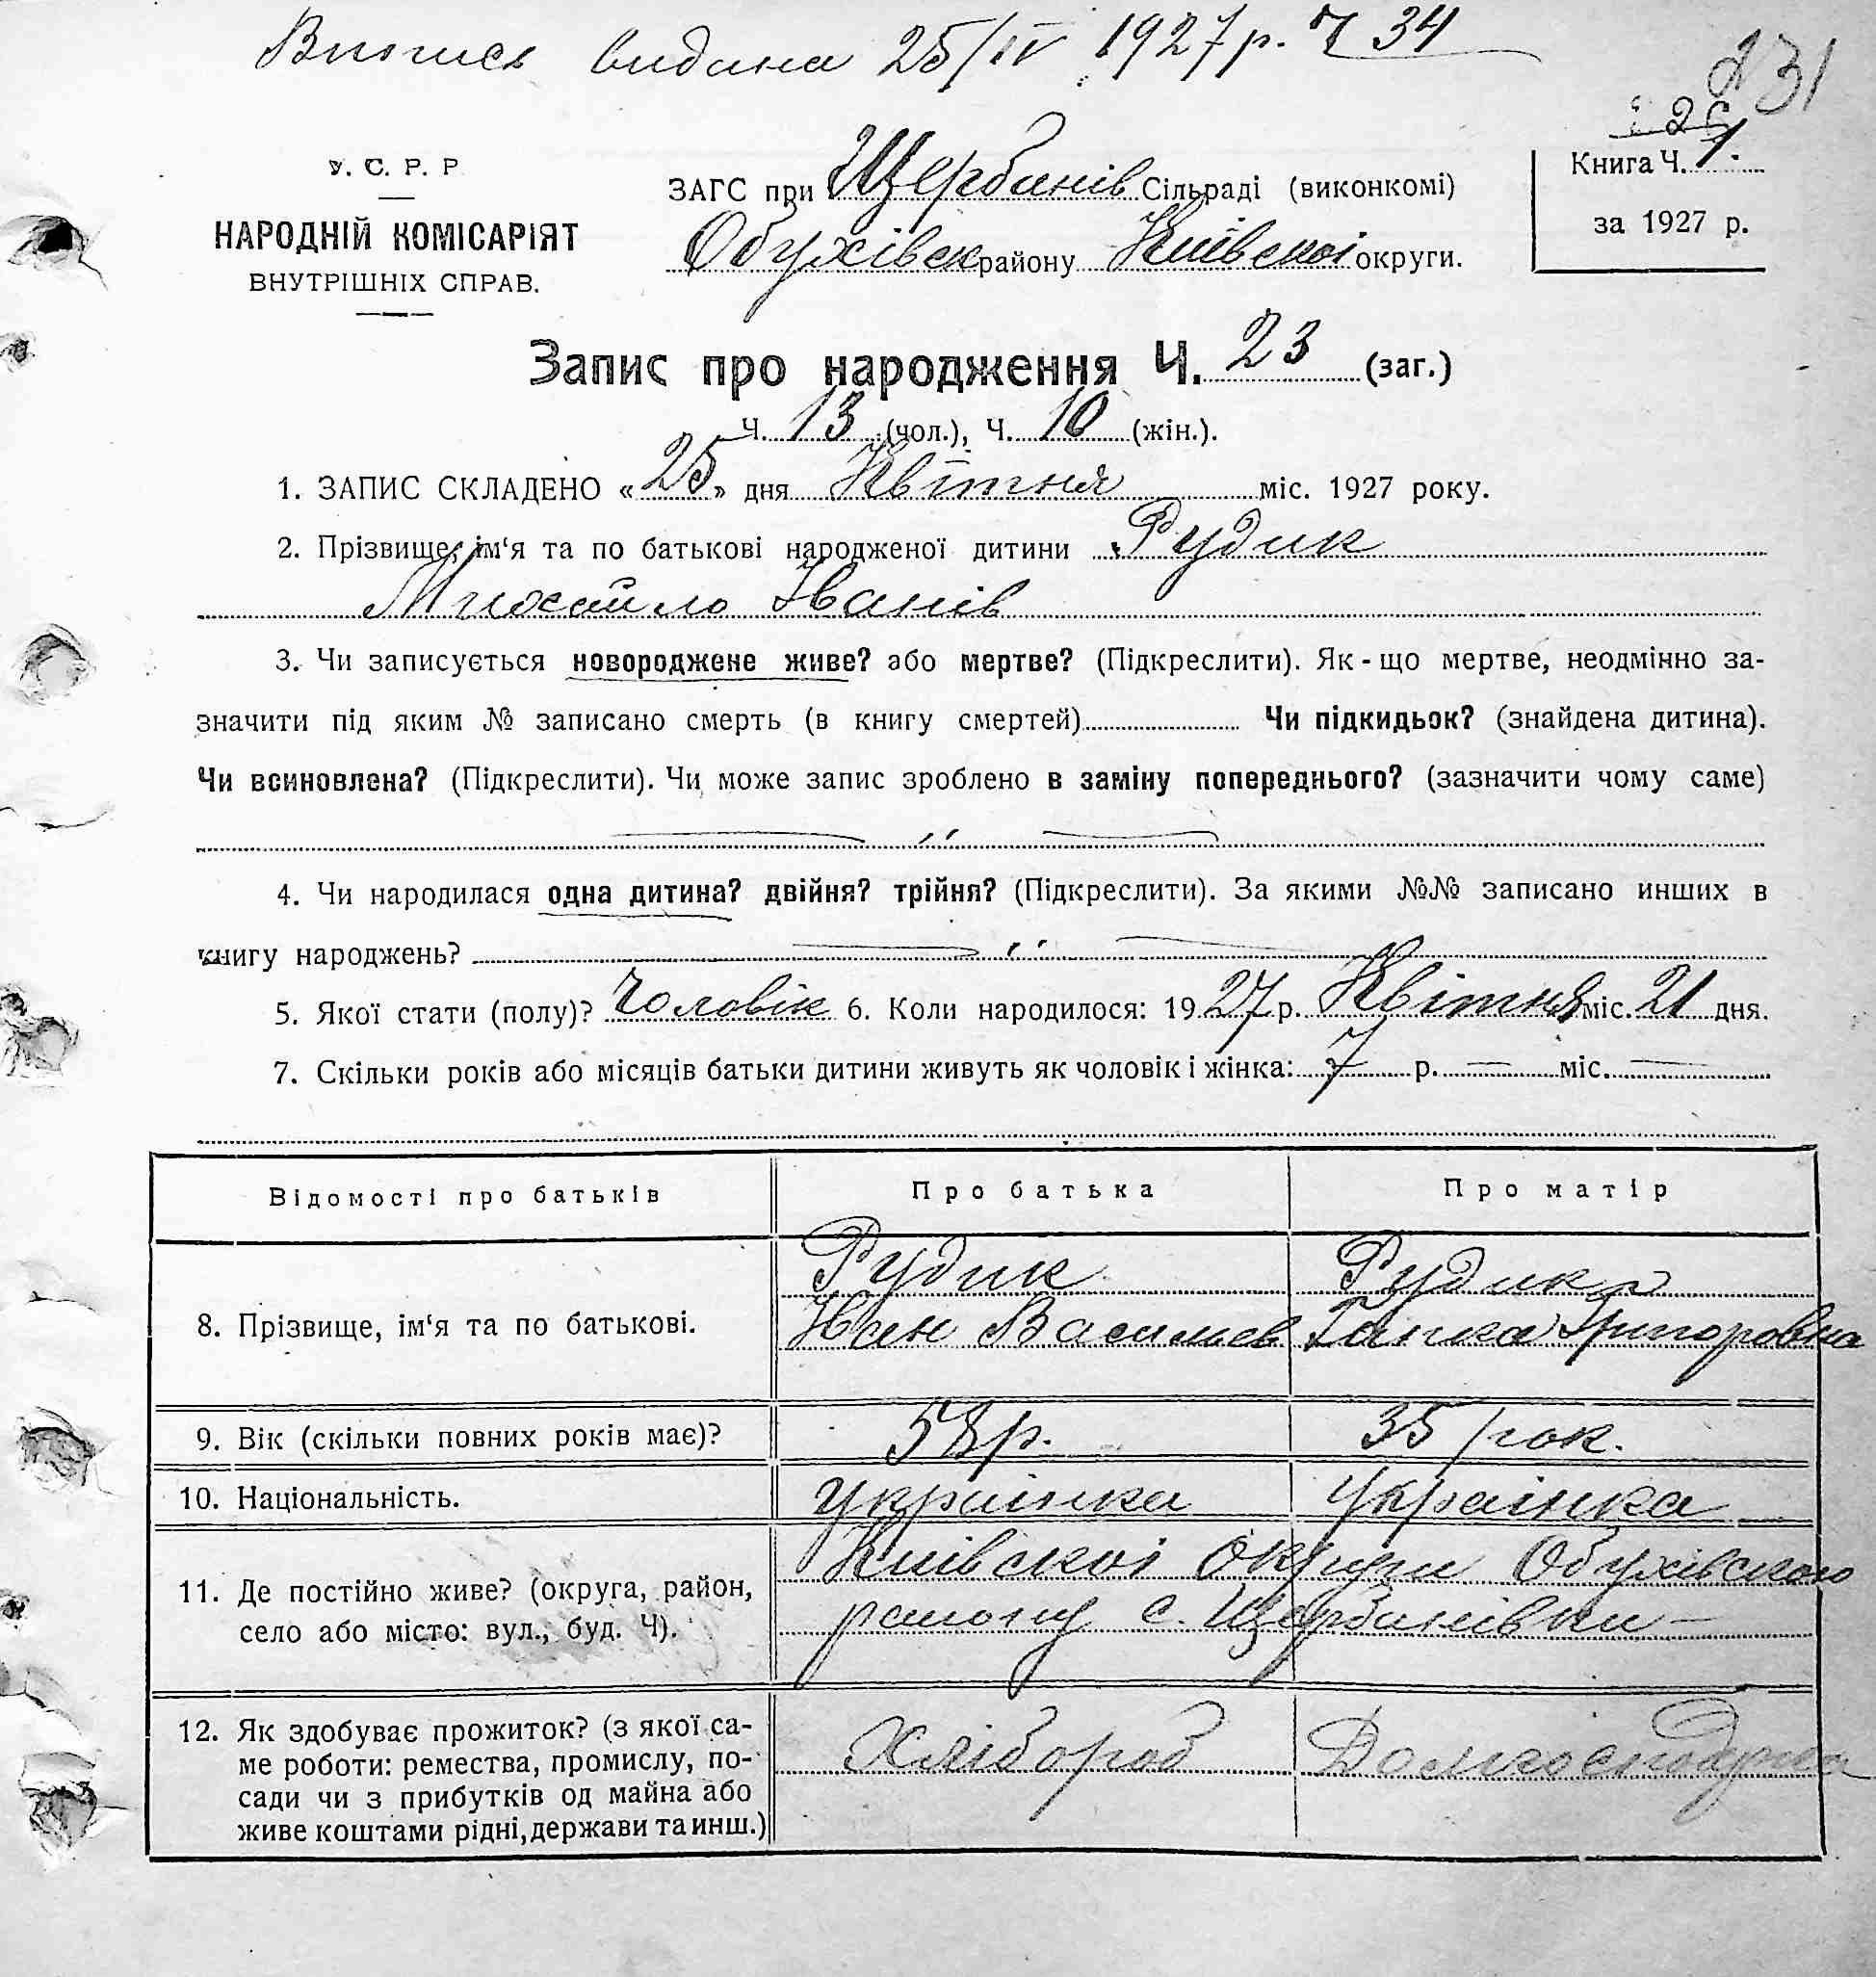 Виписсь видана 25/IV 1927 р. Ч 34
231
26
У. С. Р. Р
НАРОДНІЙ КОМІСАРІЯТ
ВНУТРІШНІХ СПРАВ.
ЗАГС при Щербанів Сільраді (виконкомі)
Обухівск району Київскоі округи.
Книга Ч. 1.
за 1927 р.
Запис про народження Ч. 23 (заг.)
Ч. 13 (чол.), Ч. 10 (жін.).
1. ЗАПИС СКЛАДЕНО «25» дня Квітня міс. 1927 року.
2. Прізвище, ім‘я та по батькові народженої дитини Рудик
Михайло Іванів
3. Чи записується новороджене живе? або мертве? (Підкреслити). Як-що мертве, неодмінно за-
значити під яким № записано смерть (в книгу смертей) Чи підкидьок? (знайдена дитина).
Чи всиновлена? (Підкреслити). Чи може запис зроблено в заміну попереднього? (зазначити чому саме)
— ,, —
4. Чи народилася одна дитина? двійня? трійня? (Підкреслити). За якими №№ записано инших в
книгу народжень? — ,, —
5. Якої стати (полу)? Чоловік 6. Коли народилося: 1927 р. Квітня міс. 21 дня.
7. Скільки років або місяців батьки дитини живуть як чоловік і жінка: 7 р. — міс. —
Відомості про батьків Про батька Про матір
8. Прізвище, ім‘я та по батькові.
Рудик Рудик
Іван Васильев Ганка Григоровна
9. Вік (скільки повних років має)? 58 р. 35 рок.
10. Національність. українка українка
11. Де постійно живе? (округа, район,
село або місто: вул., буд. Ч).
Київскоі округи Обухівского
району с. Щербанівки —
12. Як здобуває прожиток? (з якої са-
ме роботи: ремества, промислу, по-
сади чи з прибутків од майна або
живе коштами рідні, держави та инш.)
Хлібороб Домгосподурка